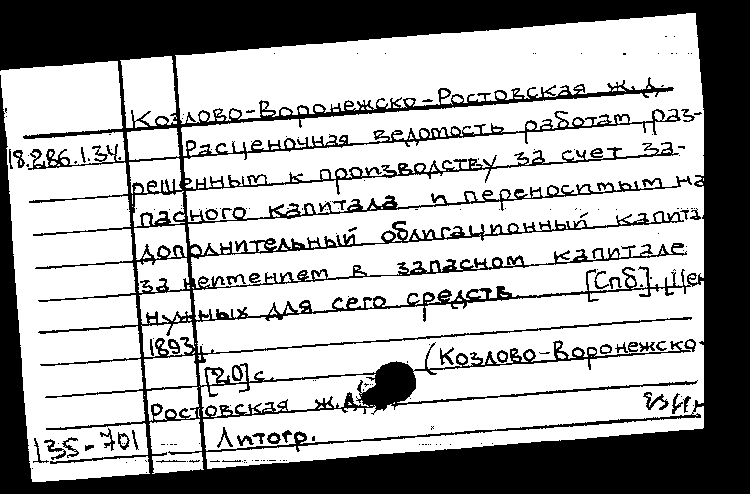 Козлово-Воронежско-Ростовская ж.д.
18.286.1.34. Расценочная ведомость работам, раз-
решенным к производству за счет за-
пасного капитала и переносимым на
дополнительный облигационный капитал
за неимением в запасном капитале
нужных для сего средств. [Спб.], Цен
1893.
[20] с. (Козлово-Воронежско-
Ростовская ж.д.
135-701 Литогр.